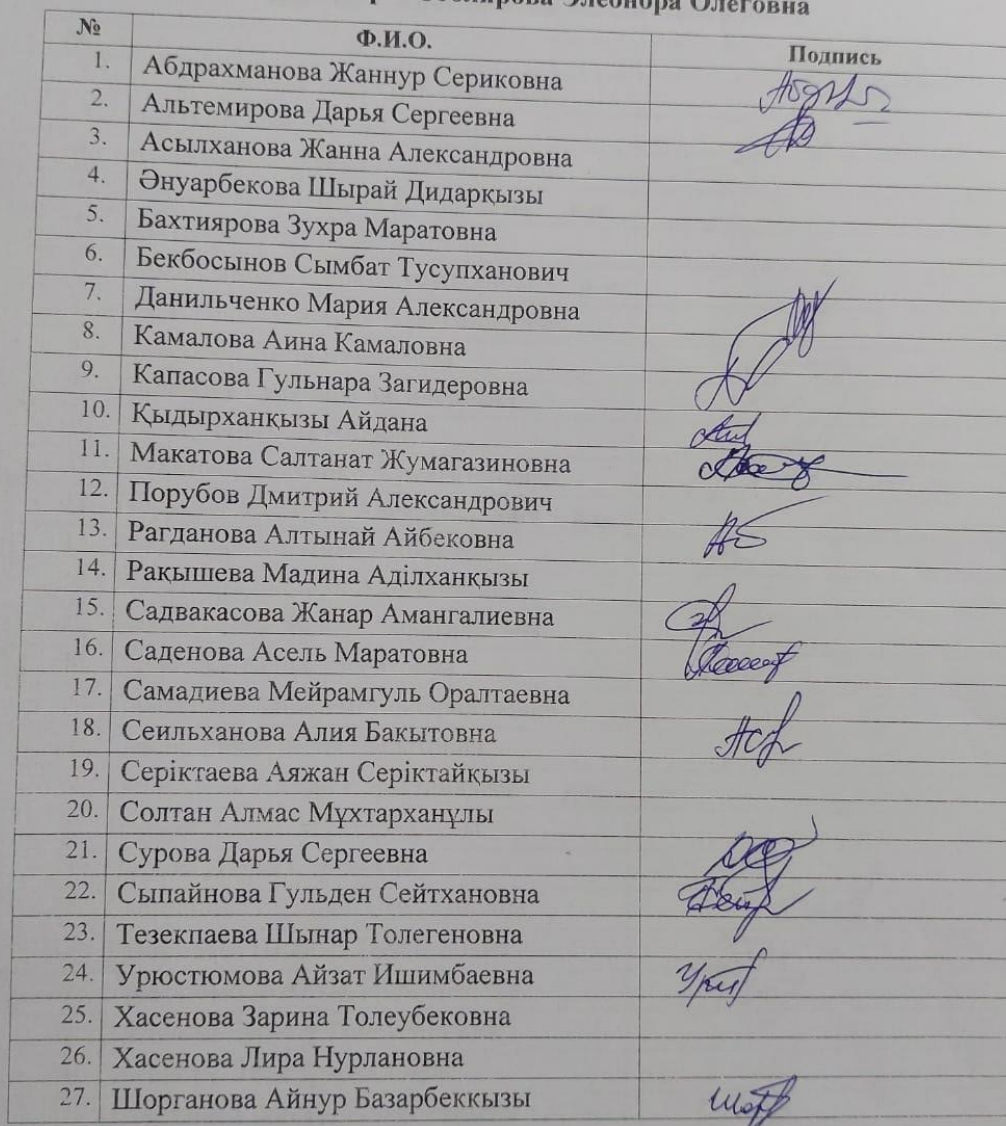 Элеонора Олеговна
№ Ф.И.О. Подпись
1. Абдрахманова Жаннур Сериковна
2. Альтемирова Дарья Сергеевна
3. Асылханова Жанна Александровна
4. Әнуарбекова Шырай Дидарқызы
5. Бахтиярова Зухра Маратовна
6. Бекбосынов Сымбат Тусупханович
7. Данильченко Мария Александровна
8. Камалова Аина Камаловна
9. Капасова Гульнара Загидеровна
10. Қыдырханқызы Айдана
11. Макатова Салтанат Жумагазиновна
12. Порубов Дмитрий Александрович
13. Рагданова Алтынай Айбековна
14. Рақышева Мадина Аділханқызы
15. Садвакасова Жанар Амангалиевна
16. Саденова Асель Маратовна
17. Самадиева Мейрамгуль Оралтаевна
18. Сеильханова Алия Бакытовна
19. Серіктаева Аяжан Серіктайқызы
20. Солтан Алмас Мұхтарханұлы
21. Сурова Дарья Сергеевна
22. Сыпайнова Гульден Сейтхановна
23. Тезекпаева Шынар Толегеновна
24. Урюстюмова Айзат Ишимбаевна
25. Хасенова Зарина Толеубековна
26. Хасенова Лира Нурлановна
27. Шорганова Айнур Базарбеккызы